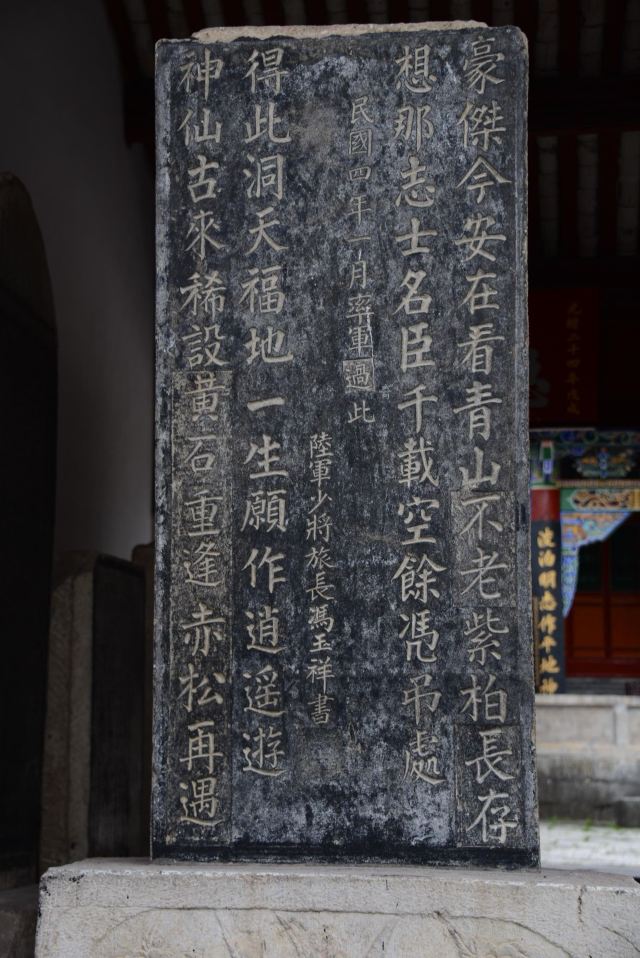 豪傑今安在看青山不老紫柏長存
想那志士名臣千載空餘憑吊處
神仙古來稀設黄石重逢赤松再遇
得此洞天福地一生願作逍遥遊
民國四年一月率軍過此
陸軍少將旅長馮玉祥書
淡泊明志作平地神